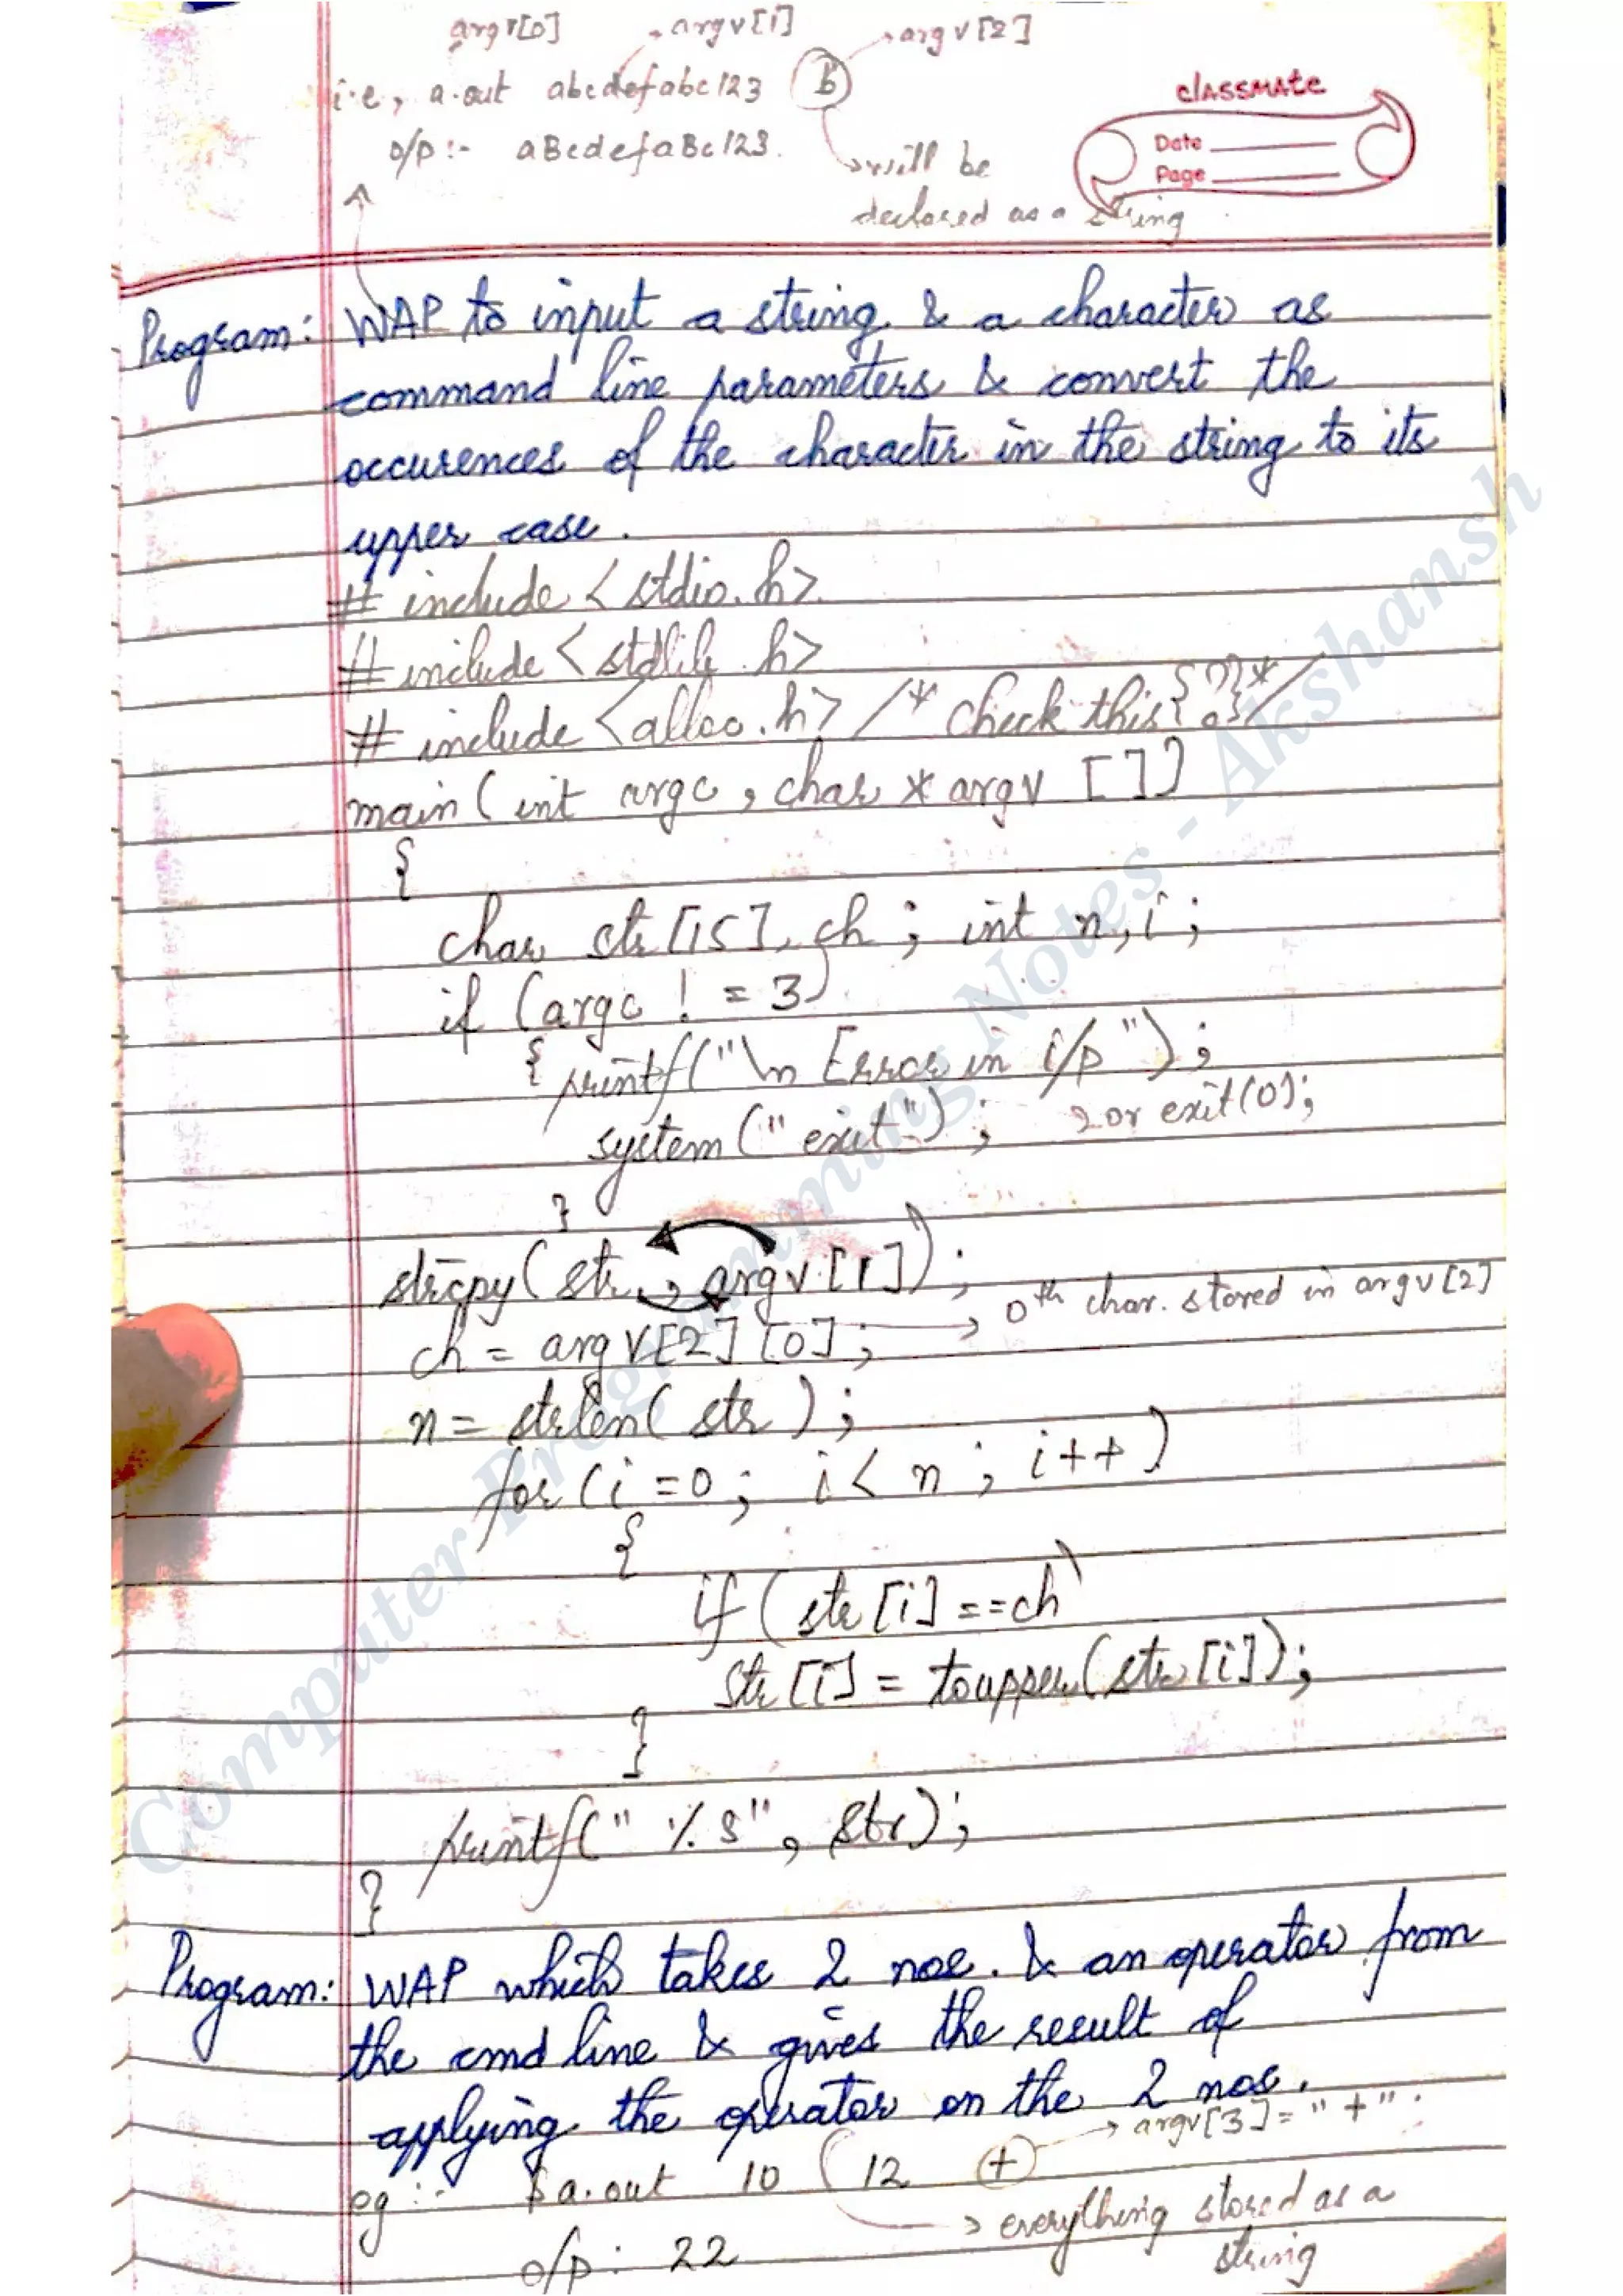 argv[0] argv[1] argv[2]
i.e, a.out abcdefabc123 b
o/p :- aBcdefaBc123.
will be
declared as a string
classmate
Date
Page
Program: WAP to input a string & a character as
command line parameters & convert the
occurences of the character in the string to its
upper case.
# include <stdio.h>
# include <stdlib.h>
# include <alloc.h> /* check this {?} */
main( int argc, char * argv [ ])
{
char str [15], ch ; int n, i ;
if (argc ! = 3)
{ printf("\n Error in i/p ") ;
system (" exit ") ; or exit(0);
}
strcpy( str , argv [1] ) ;
ch = argv[2] [0] ; → 0th char. stored in argv[2]
n = strlen( str ) ;
for (i = 0 ; i < n ; i++ )
{
if ( str [i] ==ch)
str [i] = toupper( str [i] );
}
printf(" %s" , str) ;
}
Program: WAP which takes 2 nos. & an operator from
the cmd line & gives the result of
applying the operator on the 2 nos.
→ argv[3] = " + " .
eg :- $ a.out 10 12 +
→ everything stored as a
string
o/p : 22
Computer Programming Notes - Akshansh